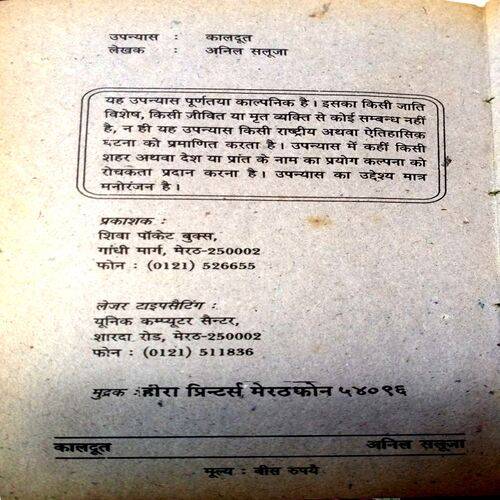 उपन्यास : कालदूत
लेखक : अनिल सलूजा
यह उपन्यास पूर्णतया काल्पनिक है। इसका किसी जाति
विशेष, किसी जीवित या मृत व्यक्ति से कोई सम्बन्ध नहीं
है, न ही यह उपन्यास किसी राष्ट्रीय अथवा ऐतिहासिक
घटना को प्रमाणित करता है। उपन्यास में कहीं किसी
शहर अथवा देश या प्रांत के नाम का प्रयोग कल्पना को
रोचकता प्रदान करना है। उपन्यास का उद्देश्य मात्र
मनोरंजन है।
प्रकाशक :
शिवा पॉकेट बुक्स,
गांधी मार्ग, मेरठ-250002
फोन : (0121) 526655
लेजर टाइपसैटिंग :
यूनिक कम्प्यूटर सैन्टर,
शारदा रोड, मेरठ-250002
फोन : (0121) 511836
मुद्रक : हीरा प्रिन्टर्स मेरठफोन ५४०९६
कालदूत अनिल सलूजा
मूल्य : बीस रुपये